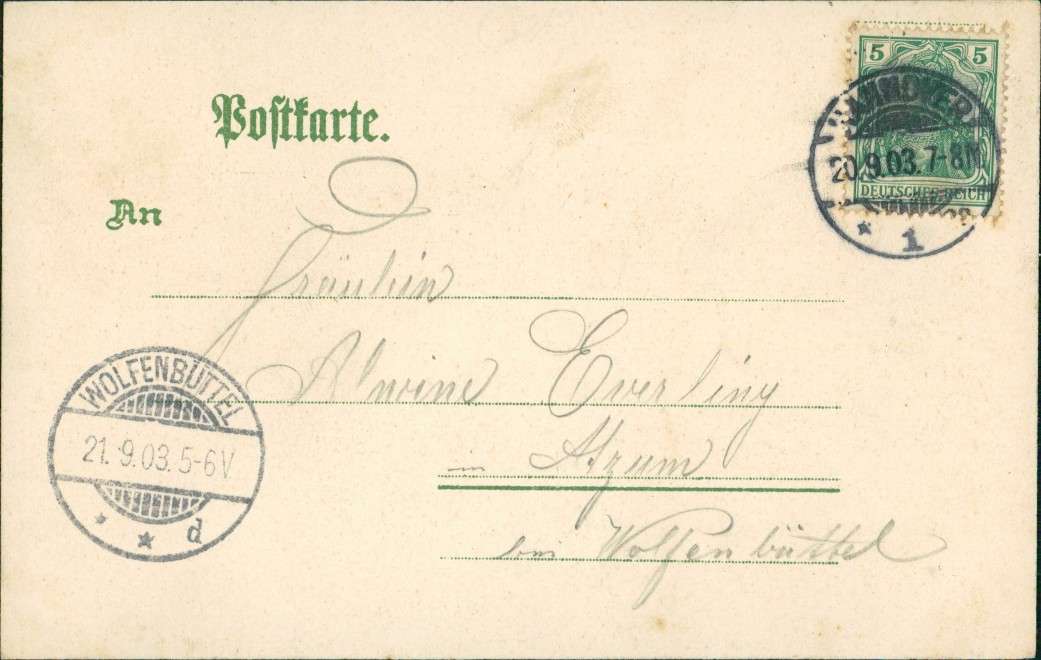 Postkarte.
5 5
DEUTSCHES REICH
HANNOVER
20.9.03.7-8N
* 1
An
Fräulein
Alwine Everling
in Atzum
bei Wolfenbüttel
WOLFENBÜTTEL
21.9.03.5-6V
* * d